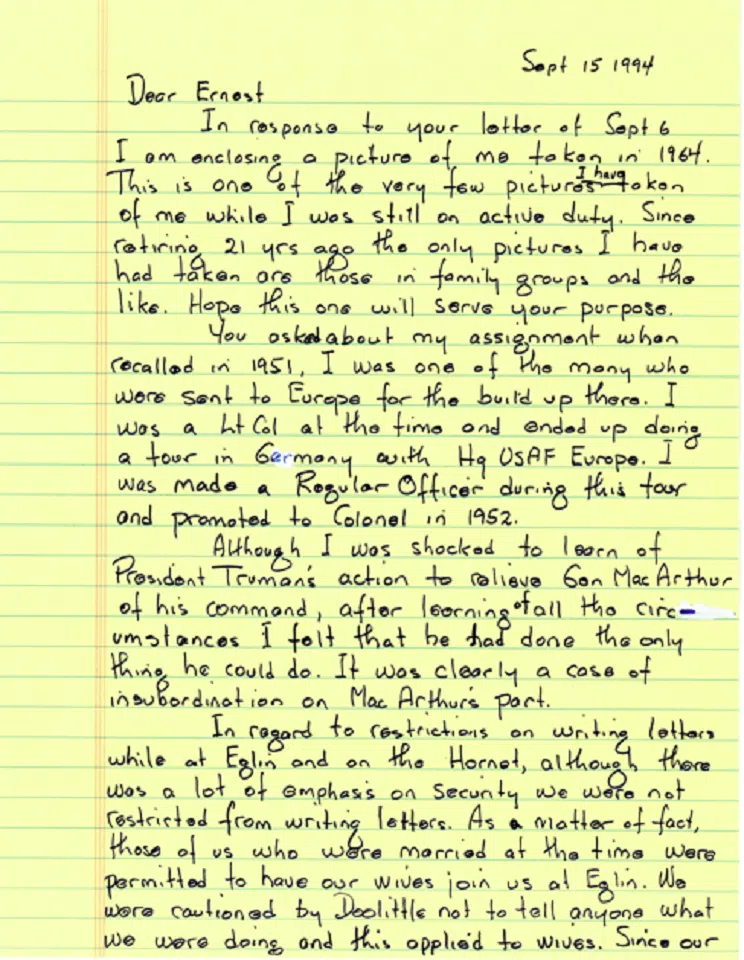 Sept 15 1994
Dear Ernest
In response to your letter of Sept 6
I am enclosing a picture of me taken in 1964.
This is one of the very few pictures I have taken
of me while I was still on active duty. Since
retiring 21 yrs ago the only pictures I have
had taken are those in family groups and the
like. Hope this one will serve your purpose.
You asked about my assignment when
recalled in 1951, I was one of the many who
were sent to Europe for the build up there. I
was a Lt Col at the time and ended up doing
a tour in Germany with Hq USAF Europe. I
was made a Regular Officer during this tour
and promoted to Colonel in 1952.
Although I was shocked to learn of
President Truman's action to relieve Gen MacArthur
of his command, after learning of all the circ-
umstances I felt that he had done the only
thing he could do. It was clearly a case of
insubordination on MacArthur's part.
In regard to restrictions on writing letters
while at Eglin and on the Hornet, although there
was a lot of emphasis on Security we were not
restricted from writing letters. As a matter of fact,
those of us who were married at the time were
permitted to have our wives join us at Eglin. We
were cautioned by Doolittle not to tell anyone what
we were doing and this applied to wives. Since our